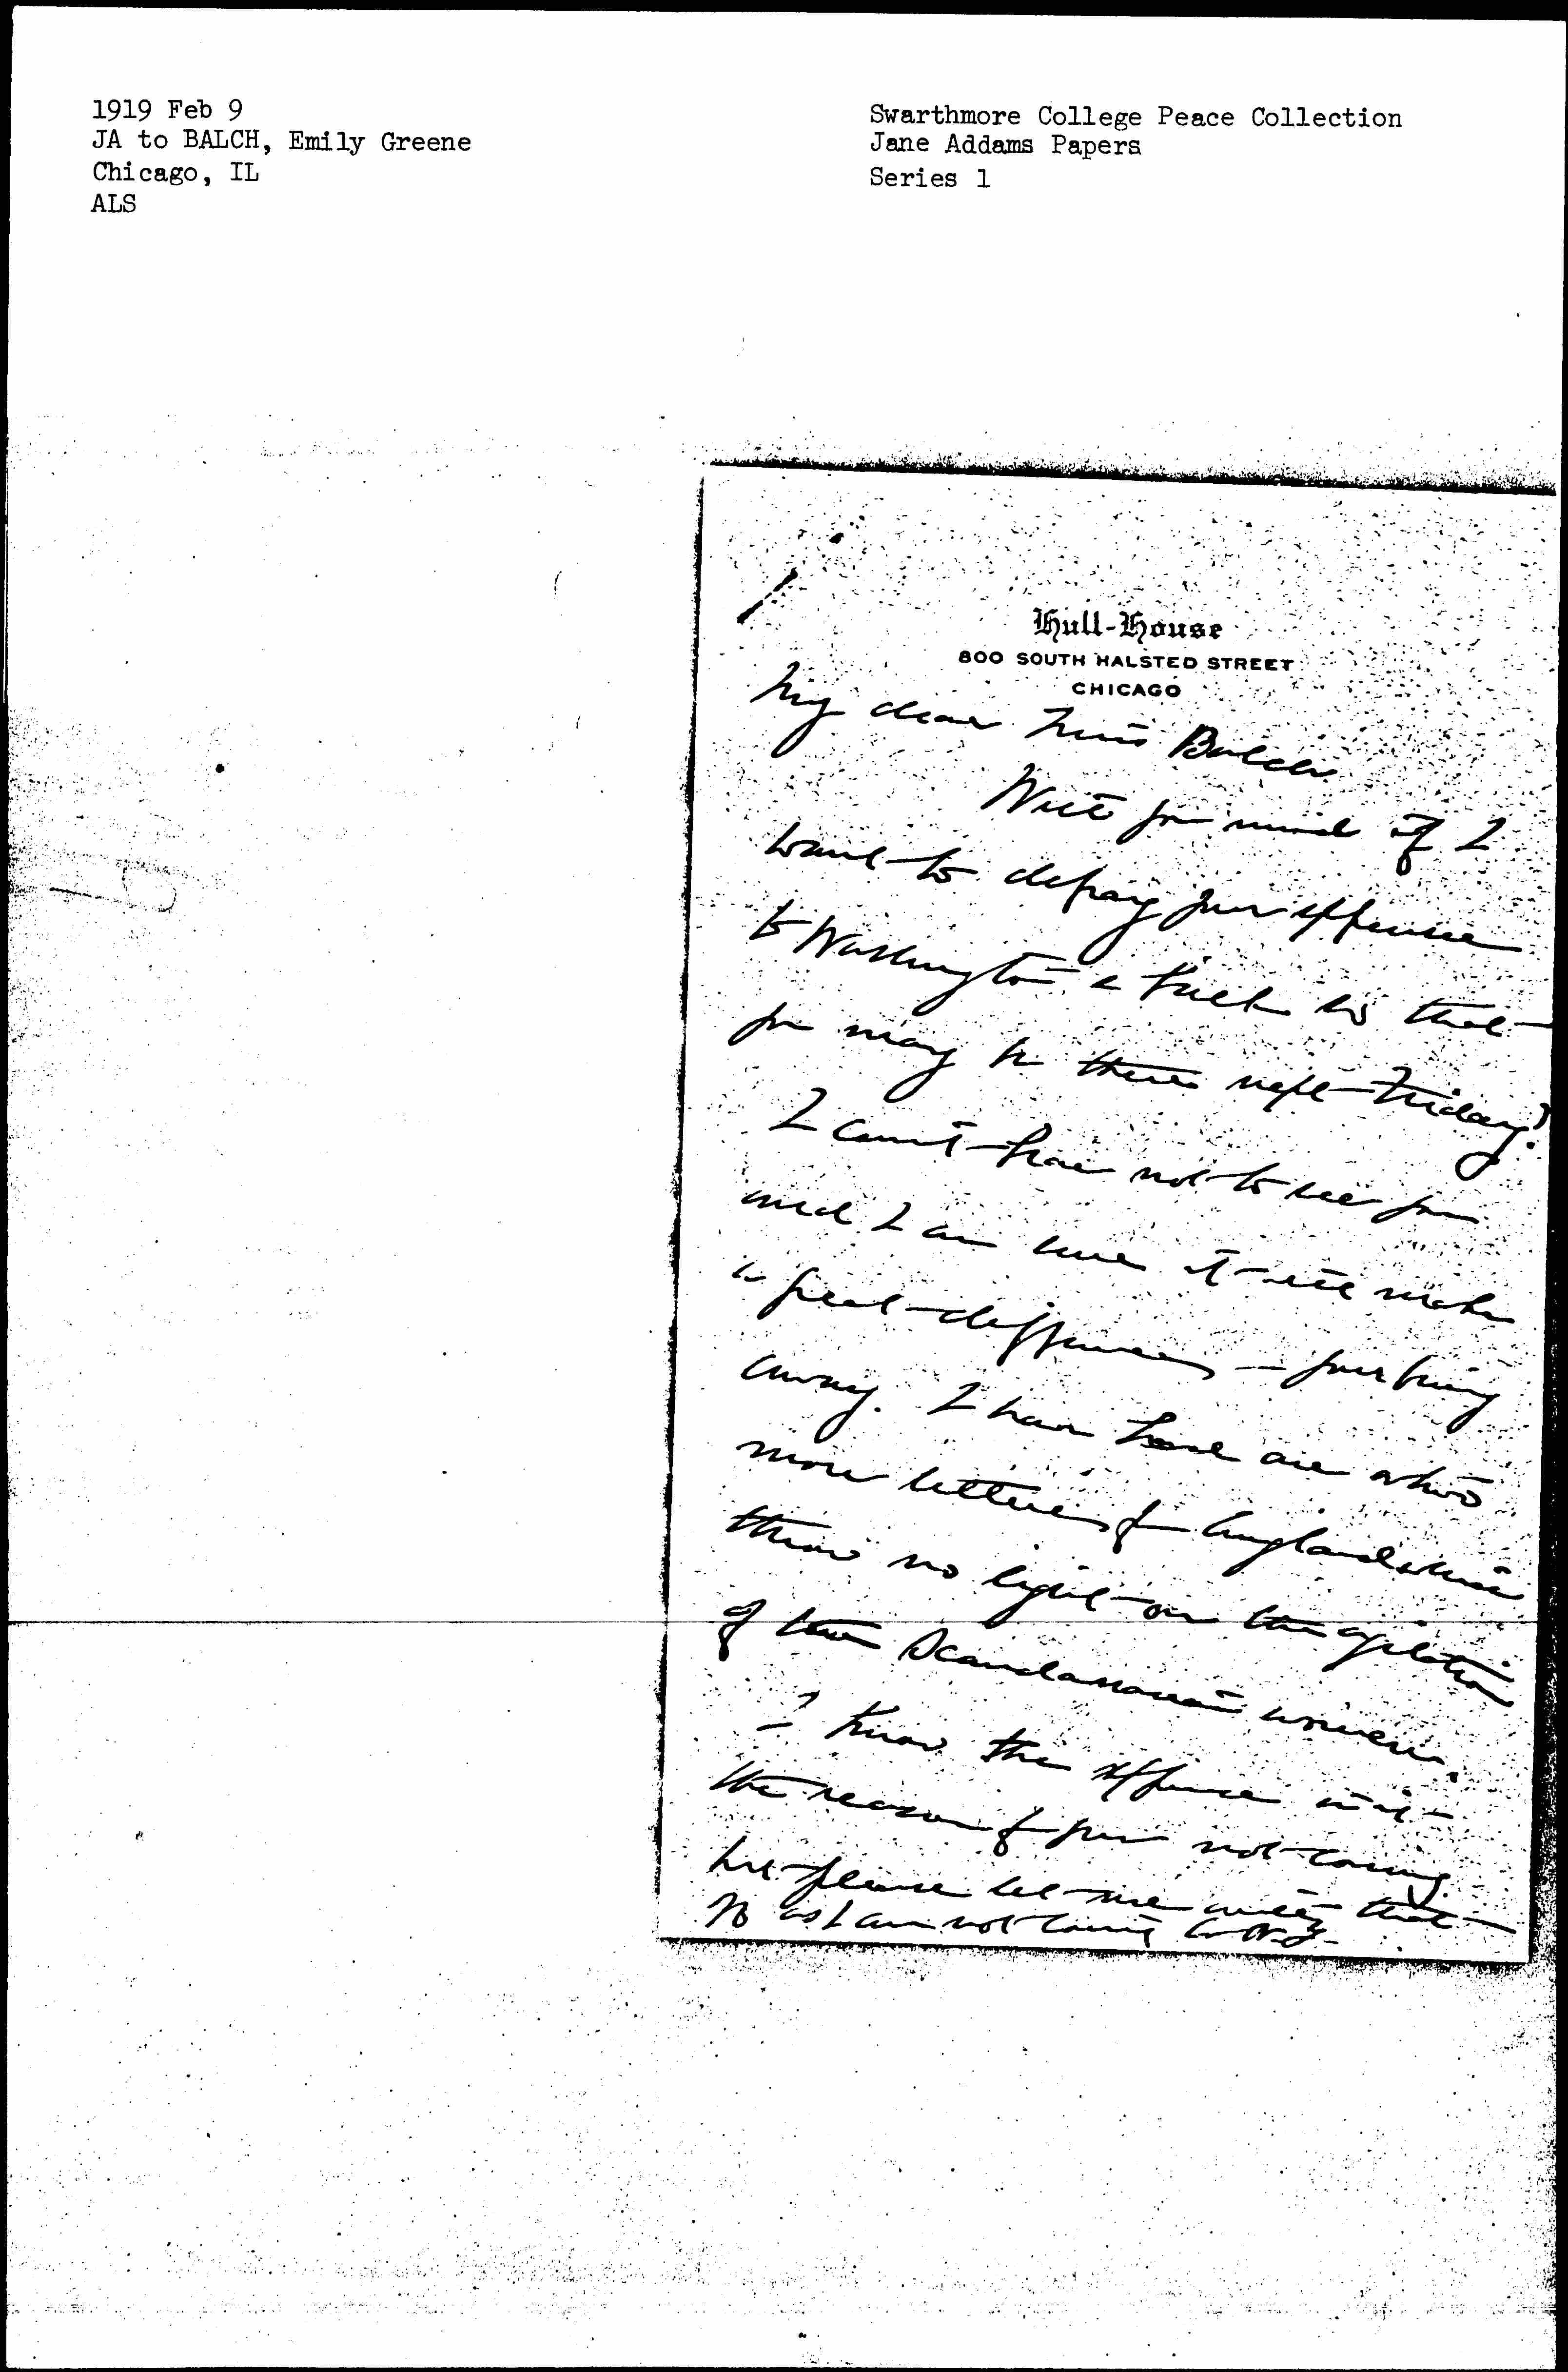 1919 Feb 9
JA to BALCH, Emily Greene
Chicago, IL
ALS
Swarthmore College Peace Collection
Jane Addams Papers
Series 1
Hull-House
800 SOUTH HALSTED STREET
CHICAGO
My dear Miss Balch
Will you mind if I
want to defray your expense
to Washington & back so that
you may be there next Friday?
I can't bear not to see you
and I am sure it will make
a great difference – your being
away. I have had
more letters fr England which
throw no light on the
of the Scandanavian women.
I know the expense isn't
the reason of your not coming
but please let me that
as I am not coming to N.Y.